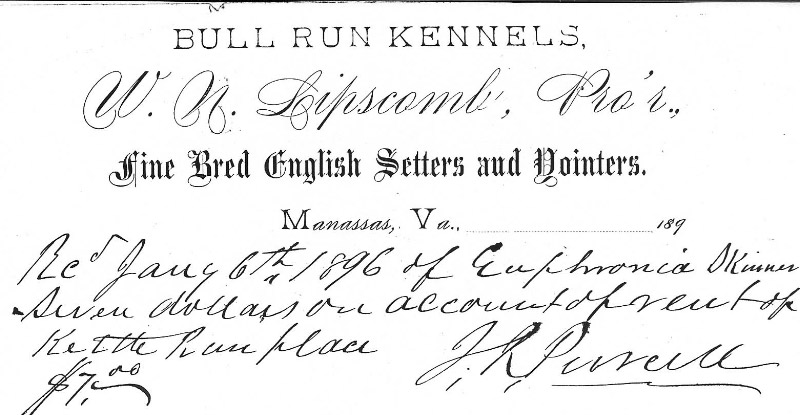 BULL RUN KENNELS,
W. N. Lipscomb, Pro'r.,
Fine Bred English Setters and Pointers.
Manassas, Va., 189
Rcd Jany 6th 1896 of Euphronia Skinner
Seven dollars on account of rent of
Kettle Run place
$7.00 J. R. Purcell